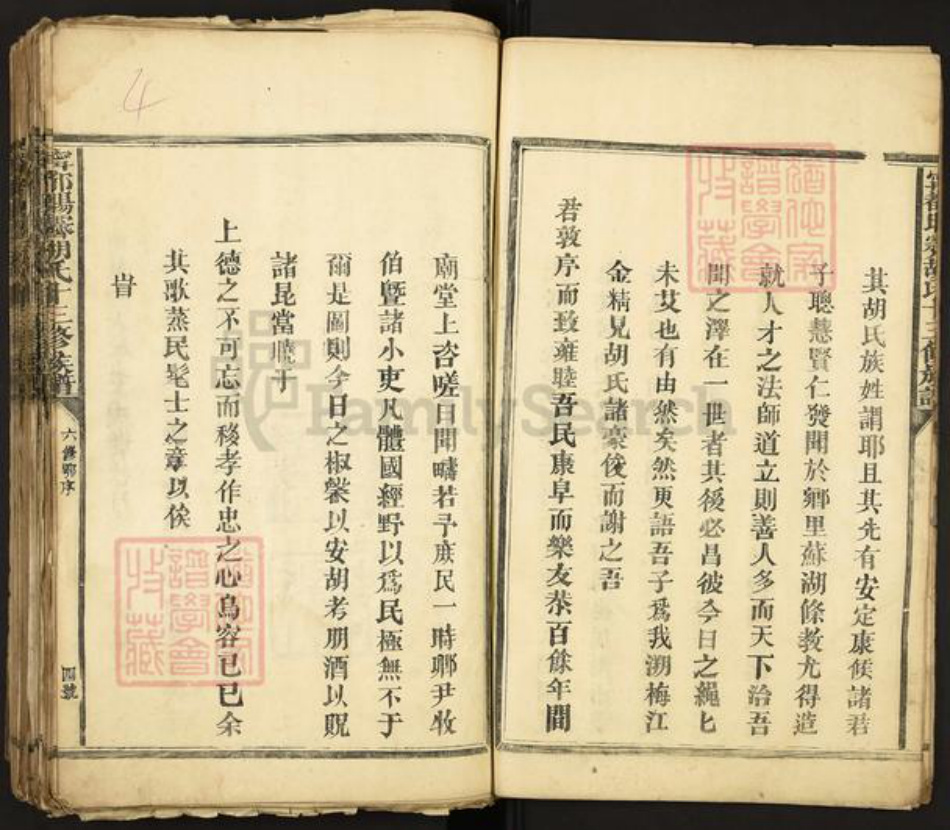 其胡氏族姓謂耶且其先有安定康侯諸君
子聰慧賢仁發聞於鄉里蘇湖條教尤得造
就人才之法師道立則善人多而天下治吾
聞之澤在一世者其後必昌彼今日之繩匕
未艾也有由然矣然更語吾子爲我溯梅江
金精見胡氏諸豪俊而謝之吾
君敦序而致雍睦吾民康阜而樂友恭百餘年間
廟堂上咨嗟曰聞疇若予庶民一時鄉尹牧
伯暨諸小吏凡體國經野以爲民極無不于
爾是圖則今日之椒馨以安胡考朋酒以貺
諸昆當曉于
上德之不可忘而移孝作忠之心烏容已已余
其歌蒸民髦士之章以俟
旹
寧都賜恭胡氏十三修族譜
六修聯序
四號
4
FamilySearch
譜學會
收藏
譜學會
收藏